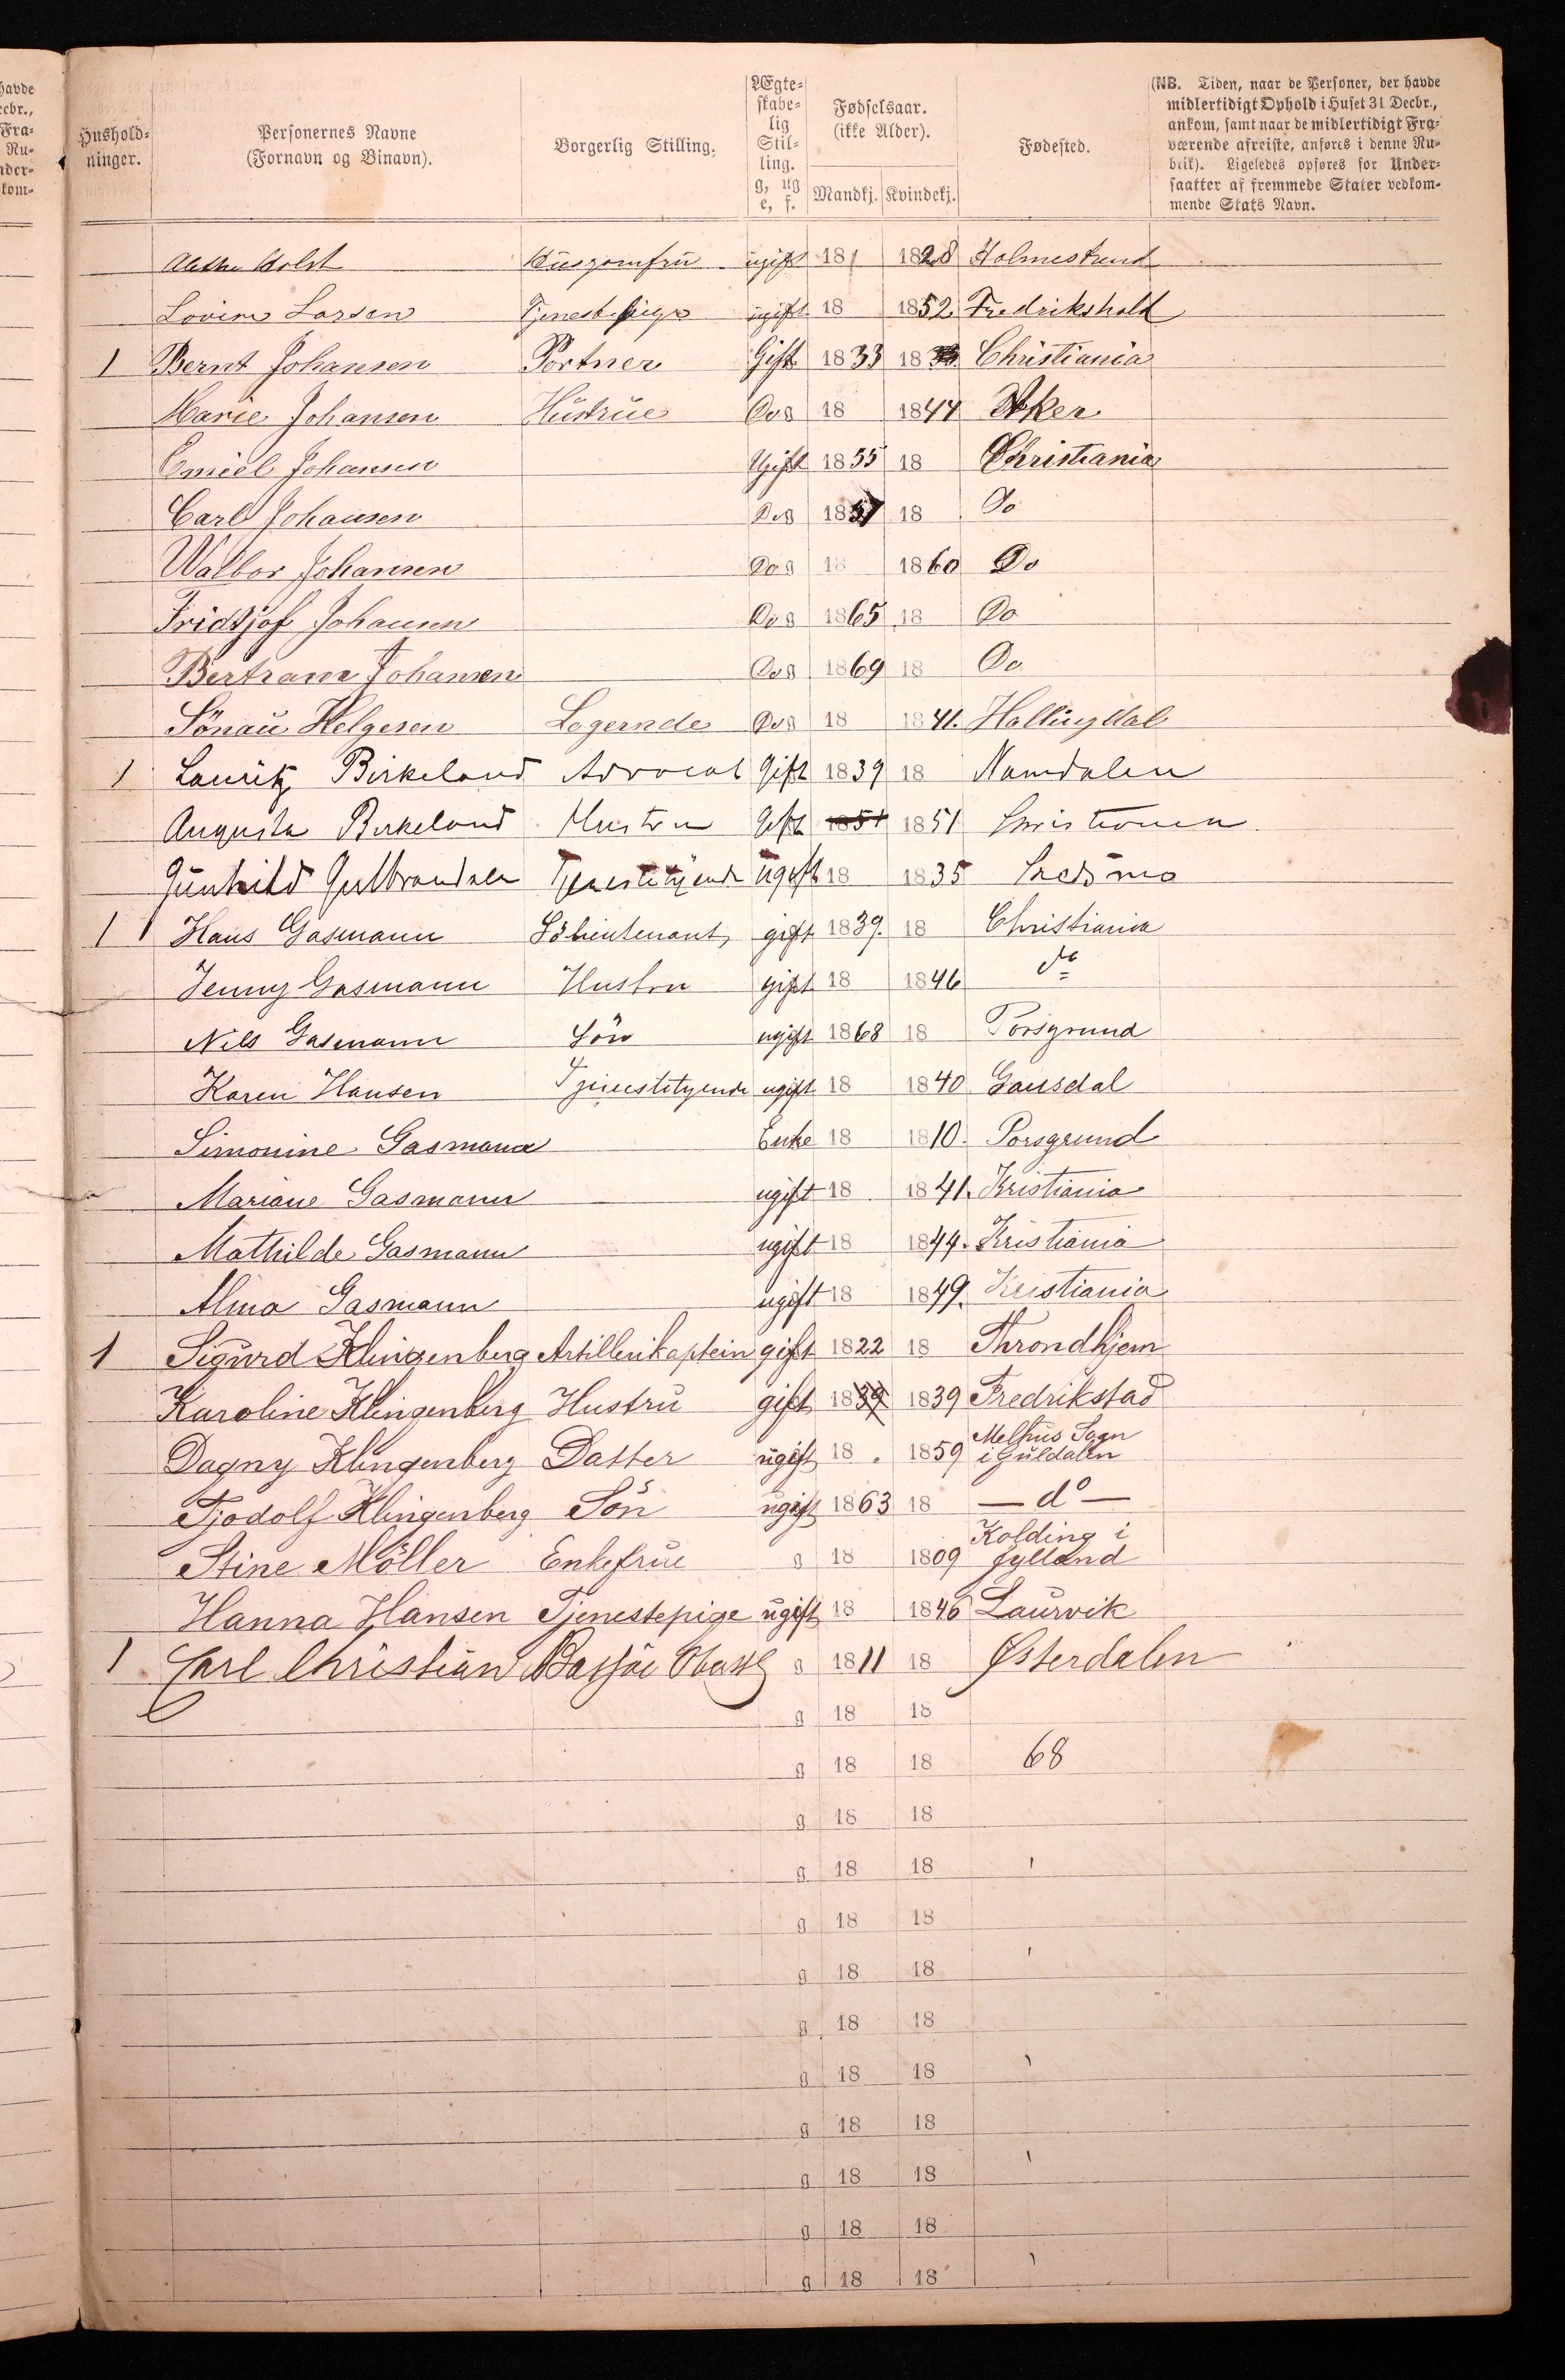 Hushold-
ninger.
Personernes Navne
(Fornavn og Binavn).
Borgerlig Stilling.
Ægte-
skabe-
lig
Stil-
ling.
g, ug
e, f.
Fødselsaar.
(ikke Alder).
Mandkj. Kvindekj.
Fødested.
(NB. Tiden, naar de Personer, der havde
midlertidigt Ophold i Huset 31 Decbr.,
ankom, samt naar de midlertidigt Fra-
værende afreiste, anføres i denne Ru-
brik). Ligeledes opføres for Under-
saatter af fremmede Stater vedkom-
mende Stats Navn.
Holst Husjomfru ugift 18 1828 Holmestrand
Lovise Larsen Tjenestepige ugift 18 1852 Fredrikshald
1 Bernt Johansen Portner Gift 1833 18 Christiania
Marie Johansen Hustrue Do g 18 1844 Aker
Emiel Johansen Ugift 1855 18 Christiania
Carl Johansen Do g 1857 18 Do
Walbor Johansen Do g 18 1860 Do
Fridtjof Johansen Do g 1865 18 Do
Bertram Johansen Do g 1869 18 Do
Sönau Helgesen Logernde Do g 18 1841. Hallingdal
1 Lauritz Birkeland Advocat gift 1839 18 Namdalen
Augusta Birkeland Hustru gift 1851 1851 Christiania
Gunhild Gulbrandsen Tjenestetyende ugift 18 1835
1 Hans Gasmann Sölieutenant, gift 1839. 18 Christiania
Jenny Gasmann Hustru gift 18 1846 do
Nils Gasmann Sön ugift 1868 18 Porsgrund
Karen Hansen Tjenestetyende ugift 18 1840 Gausdal
Simonine Gasmann Enke 18 1810. Porsgrund
Mariane Gasmann ugift 18 1841. Kristiania
Mathilde Gasmann ugift 18 1844. Kristiania
Alma Gasmann ugift 18 1849. Kristiania
1 Sigurd Klingenberg Artillerikaptein gift 1822 18 Throndhjem
Karoline Klingenberg Hustru gift 1839 1839 Fredrikstad
Dagny Klingenberg Datter ugift 18 1859 Melhus Sogn
i Guldalen
Tjodolf Klingenberg Sön ugift 1863 18 — do —
Stine Möller Enkefrue g 18 1809 Kolding i
Jylland
Hanna Hansen Tjenestepige ugift 18 1846 Laurvik
1 Carl Christian g 1811 18 Østerdalen
g 18 18
g 18 18 68
g 18 18
g 18 18
g 18 18
g 18 18
g 18 18
g 18 18
g 18 18
g 18 18
g 18 18
g 18 18
havde
ecbr.,
Fra-
Ru-
nder-
kom-